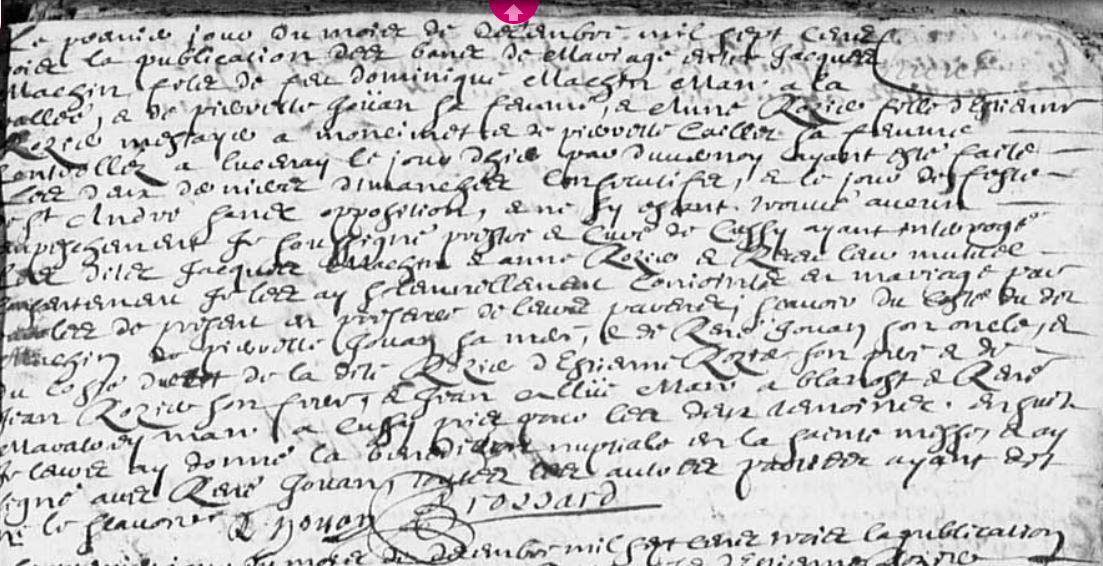 Le premier jour du mois de decembre mil sept cent
trois la publication des bans de Mariage entre Jacques
Machin filz de feu dominique Machin Man a la
vallée, & de pierrette Goüan sa femme, & Anne Rozier fille d'Estienne
Rozier mestayer a & de pierrette Caillet sa femme
Controllez a Lucenay le jour d'hier par duvernoy ayant esté faite
les deux derniers dimanches consecutifes, & le jour de feste
de St André sans opposition, & ne sy estant trouvé aucun
empeschement Je soussigné prestre & curé de Cussy ayant interrogé
les dites Jacques Machin & anne Rozier & Receu leur mutuel
consentement Je les ay solennellement conjointes en mariage par
parolles de present en presence de leurs parents, scavoir du costé du dit
Machin de pierrette Goüan sa mere, & de René Goüan son oncle, &
du costé de la dite Rozier d'Estienne Rozier son pere & de
Jean Rozier son frere, & Jean Man a blanost & René
man a Cussy priez pour les deux temoines. Ensuite
Je leurs ay donné la benediction nuptiale en la sainte messe, & ay
signé avec René Goüan, toutes les autres parties ayant dit
ne le scavoir R Goüan Brossard
jour du mois de decembre mil sept cent trois la publication
d'Estienne Rozier